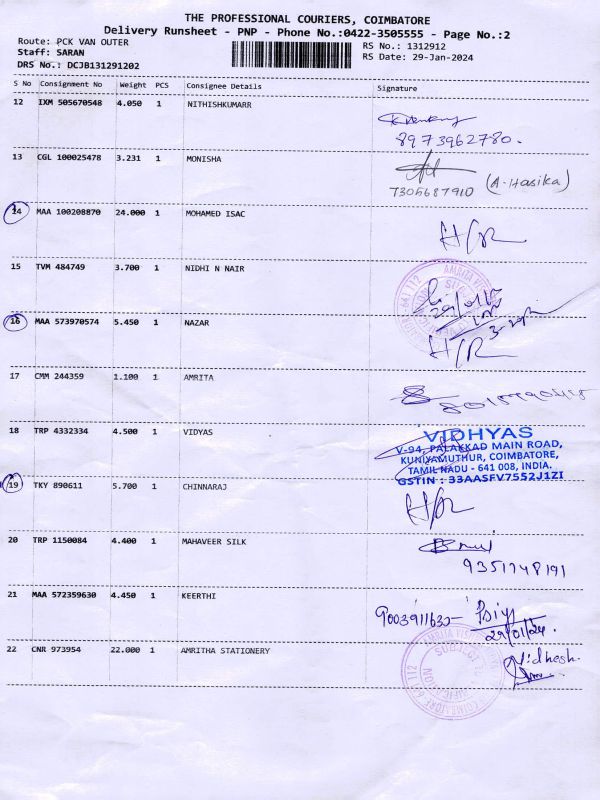 THE PROFESSIONAL COURIERS, COIMBATORE
Delivery Runsheet - PNP - Phone No.:0422-3505555 - Page No.:2
Route: PCK VAN OUTER
RS No.: 1312912
Staff: SARAN
RS Date: 29-Jan-2024
DRS No.: DCJB131291202
S No Consignment No Weight PCS Consignee Details Signature
12 IXM 505670548 4.050 1 NITHISHKUMARR
8973962780.
13 CGL 100025478 3.231 1 MONISHA
7305687910 (A-Hasika)
14 MAA 100208870 24.000 1 MOHAMED ISAC
15 TVM 484749 3.700 1 NIDHI N NAIR
16 MAA 573970574 5.450 1 NAZAR
17 CMM 244359 1.100 1 AMRITA
18 TRP 4332334 4.500 1 VIDYAS
VIDHYAS
V-94, PALAKKAD MAIN ROAD,
KUNIYAMUTHUR, COIMBATORE,
TAMIL NADU - 641 008, INDIA.
GSTIN : 33AASFV7552J1ZI
19 TKY 890611 5.700 1 CHINNARAJ
20 TRP 1150084 4.400 1 MAHAVEER SILK
9351748191
21 MAA 572359630 4.450 1 KEERTHI
29/01/24.
22 CNR 973954 22.000 1 AMRITHA STATIONERY